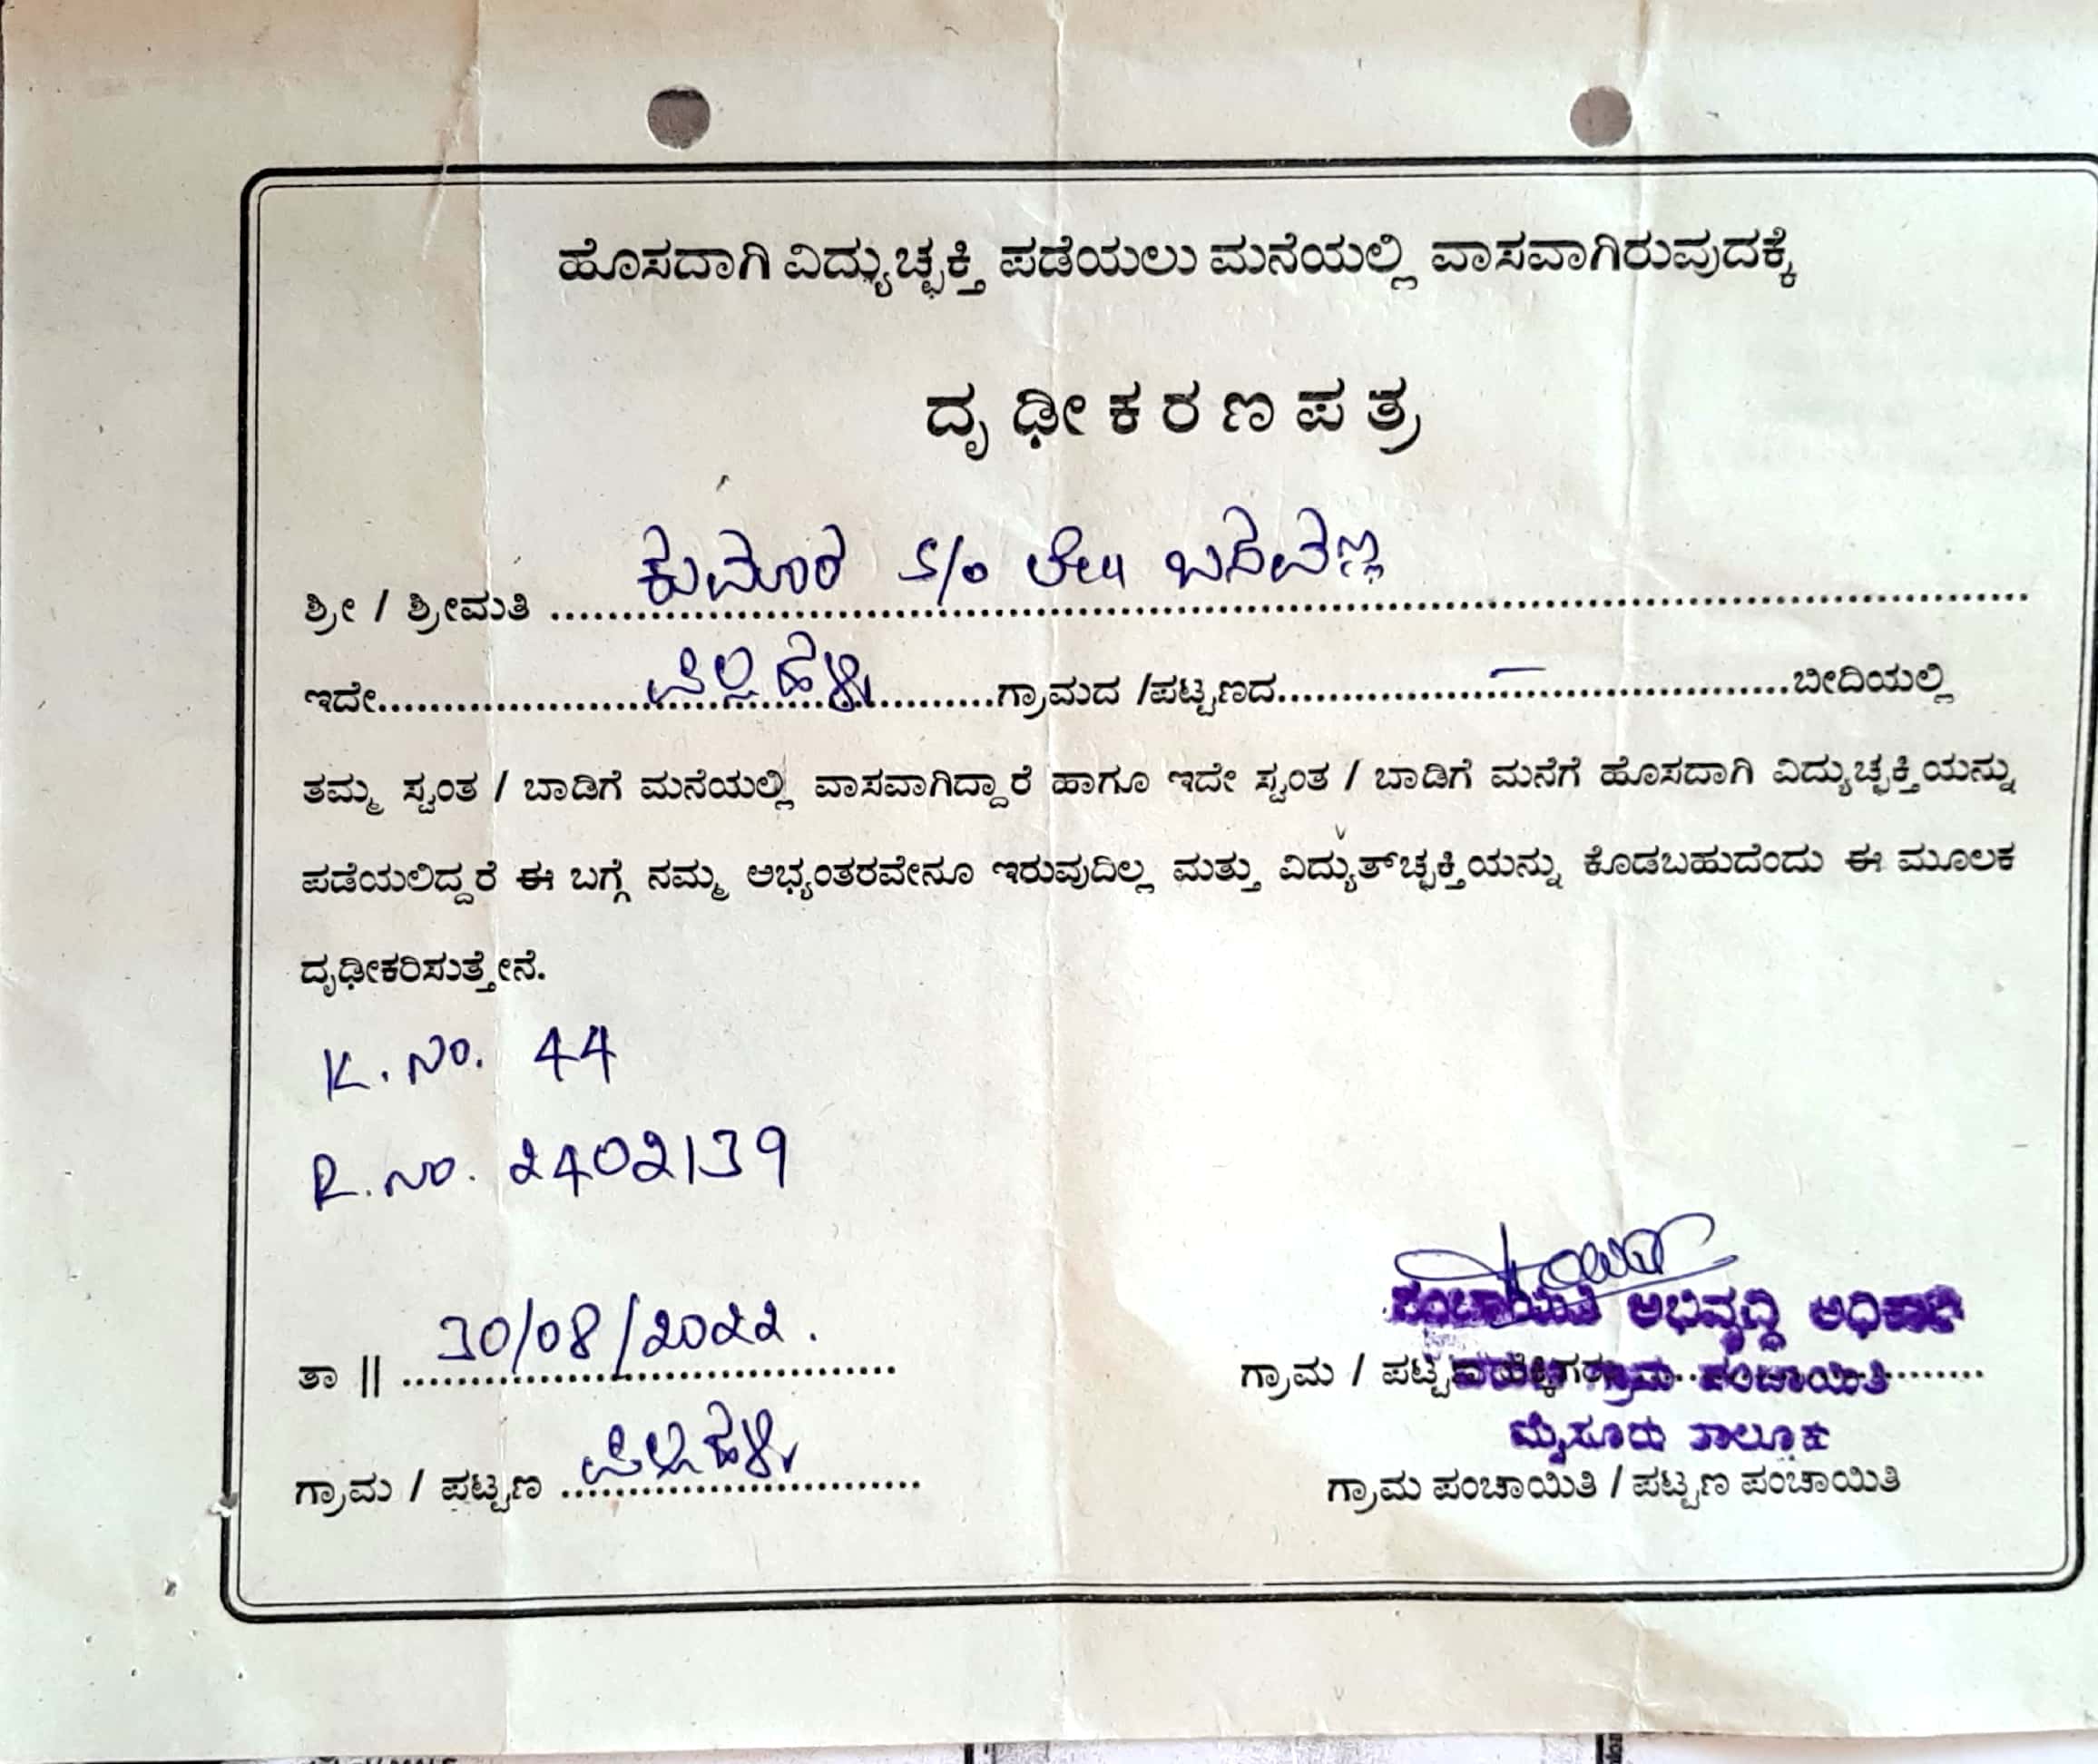 ಹೊಸದಾಗಿ ವಿದ್ಯುಚ್ಛಕ್ತಿ ಪಡೆಯಲು ಮನೆಯಲ್ಲಿ ವಾಸವಾಗಿರುವುದಕ್ಕೆ
ದೃಢೀಕರಣಪತ್ರ
ಶ್ರೀ / ಶ್ರೀಮತಿ ಕುಮಾರ S/o ಲೇ|| ಬಸವಣ್ಣ
ಇದೇ ಗ್ರಾಮದ /ಪಟ್ಟಣದ - ಬೀದಿಯಲ್ಲಿ
ತಮ್ಮ ಸ್ವಂತ / ಬಾಡಿಗೆ ಮನೆಯಲ್ಲಿ ವಾಸವಾಗಿದ್ದಾರೆ ಹಾಗೂ ಇದೇ ಸ್ವಂತ / ಬಾಡಿಗೆ ಮನೆಗೆ ಹೊಸದಾಗಿ ವಿದ್ಯುಚ್ಛಕ್ತಿಯನ್ನು
ಪಡೆಯಲಿದ್ದರೆ ಈ ಬಗ್ಗೆ ನಮ್ಮ ಅಭ್ಯಂತರವೇನೂ ಇರುವುದಿಲ್ಲ ಮತ್ತು ವಿದ್ಯುತ್‌ಚ್ಛಕ್ತಿಯನ್ನು ಕೊಡಬಹುದೆಂದು ಈ ಮೂಲಕ
ದೃಢೀಕರಿಸುತ್ತೇನೆ.
K. No. 44
R. No. 2402139
ತಾ || 30/08/2022.
ಪಂಚಾಯಿತಿ ಅಭಿವೃದ್ಧಿ ಅಧಿಕಾರಿ
ಗ್ರಾಮ / ಪಟ್ಟಣ
ಗ್ರಾಮ ಪಂಚಾಯಿತಿ
ಮೈಸೂರು ತಾಲ್ಲೂಕು
ಗ್ರಾಮ / ಪಟ್ಟಣ
ಗ್ರಾಮ ಪಂಚಾಯಿತಿ / ಪಟ್ಟಣ ಪಂಚಾಯಿತಿ